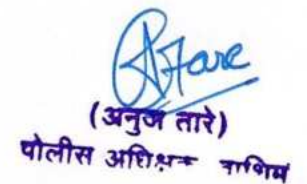 (अनुज तारे)
पोलीस अधिक्षक वाशिम